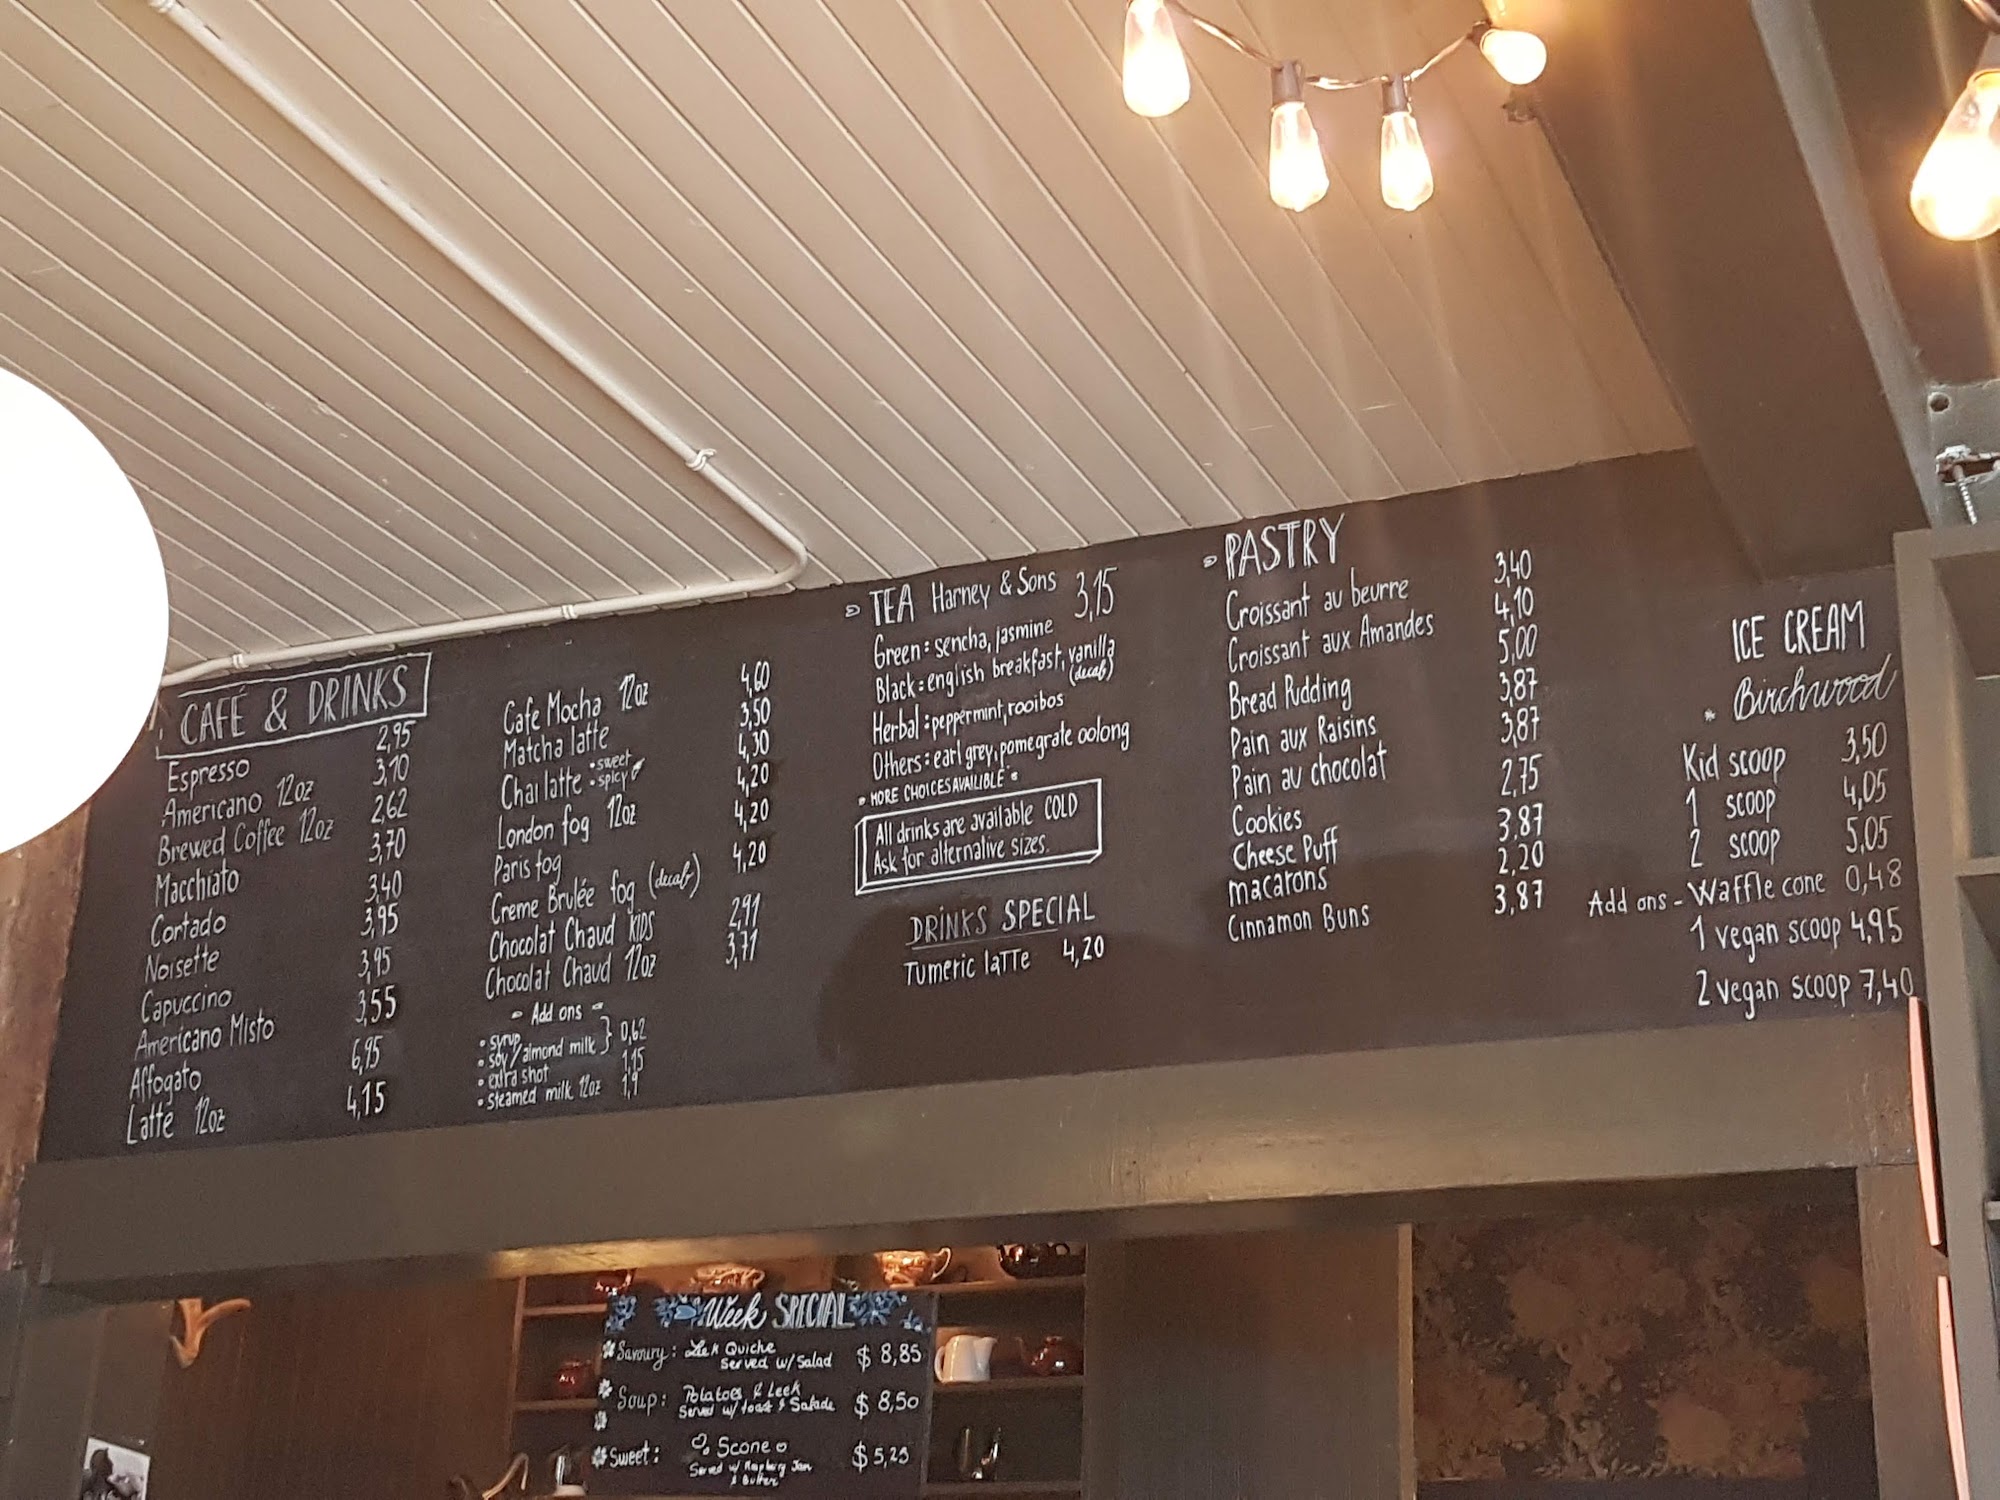 CAFÉ & DRINKS
Espresso 2,95
Americano 12oz 3,10
Brewed Coffee 12oz 2,62
Macchiato 3,70
Cortado 3,40
Noisette 3,95
Capuccino 3,95
Americano Misto 3,55
Affogato 6,95
Latte 12oz 4,15
Cafe Mocha 12oz 4,60
Matcha latte 3,50
Chai latte • sweet • spicy 4,30
London fog 12oz 4,20
Paris fog 4,20
Creme Brulée fog (decaf) 4,20
Chocolat Chaud KIDS 2,91
Chocolat Chaud 12oz 3,71
Add ons
• syrup
• soy / almond milk } 0,62
• extra shot 1,15
• steamed milk 12oz 1,9
TEA Harney & Sons 3,15
Green: sencha, jasmine
Black: english breakfast, vanilla
(decaf)
Herbal: peppermint, rooibos
Others: earl grey, pomegrate oolong
MORE CHOICES AVAILIBLE
All drinks are available COLD
Ask for alternative sizes.
DRINKS SPECIAL
Tumeric laTTe 4,20
PASTRY
Croissant au beurre 3,40
Croissant aux Amandes 4,10
Bread Pudding 5,00
Pain aux Raisins 3,87
Pain au chocolat 3,87
Cookies 2,75
Cheese Puff 3,87
macarons 2,20
Cinnamon Buns 3,87
ICE CREAM
* Birchwood
Kid scoop 3,50
1 scoop 4,05
2 scoop 5,05
Add ons - Waffle cone 0,48
1 vegan scoop 4,95
2 vegan scoop 7,40
Week SPECIAL
Savoury: Leek Quiche
Served w/ Salad $ 8,85
Soup: Potatoes & Leek
Served w/ toast & Salade $ 8,50
Sweet: Scone
Served w/ Raspberry Jam
& Butter $ 5,23